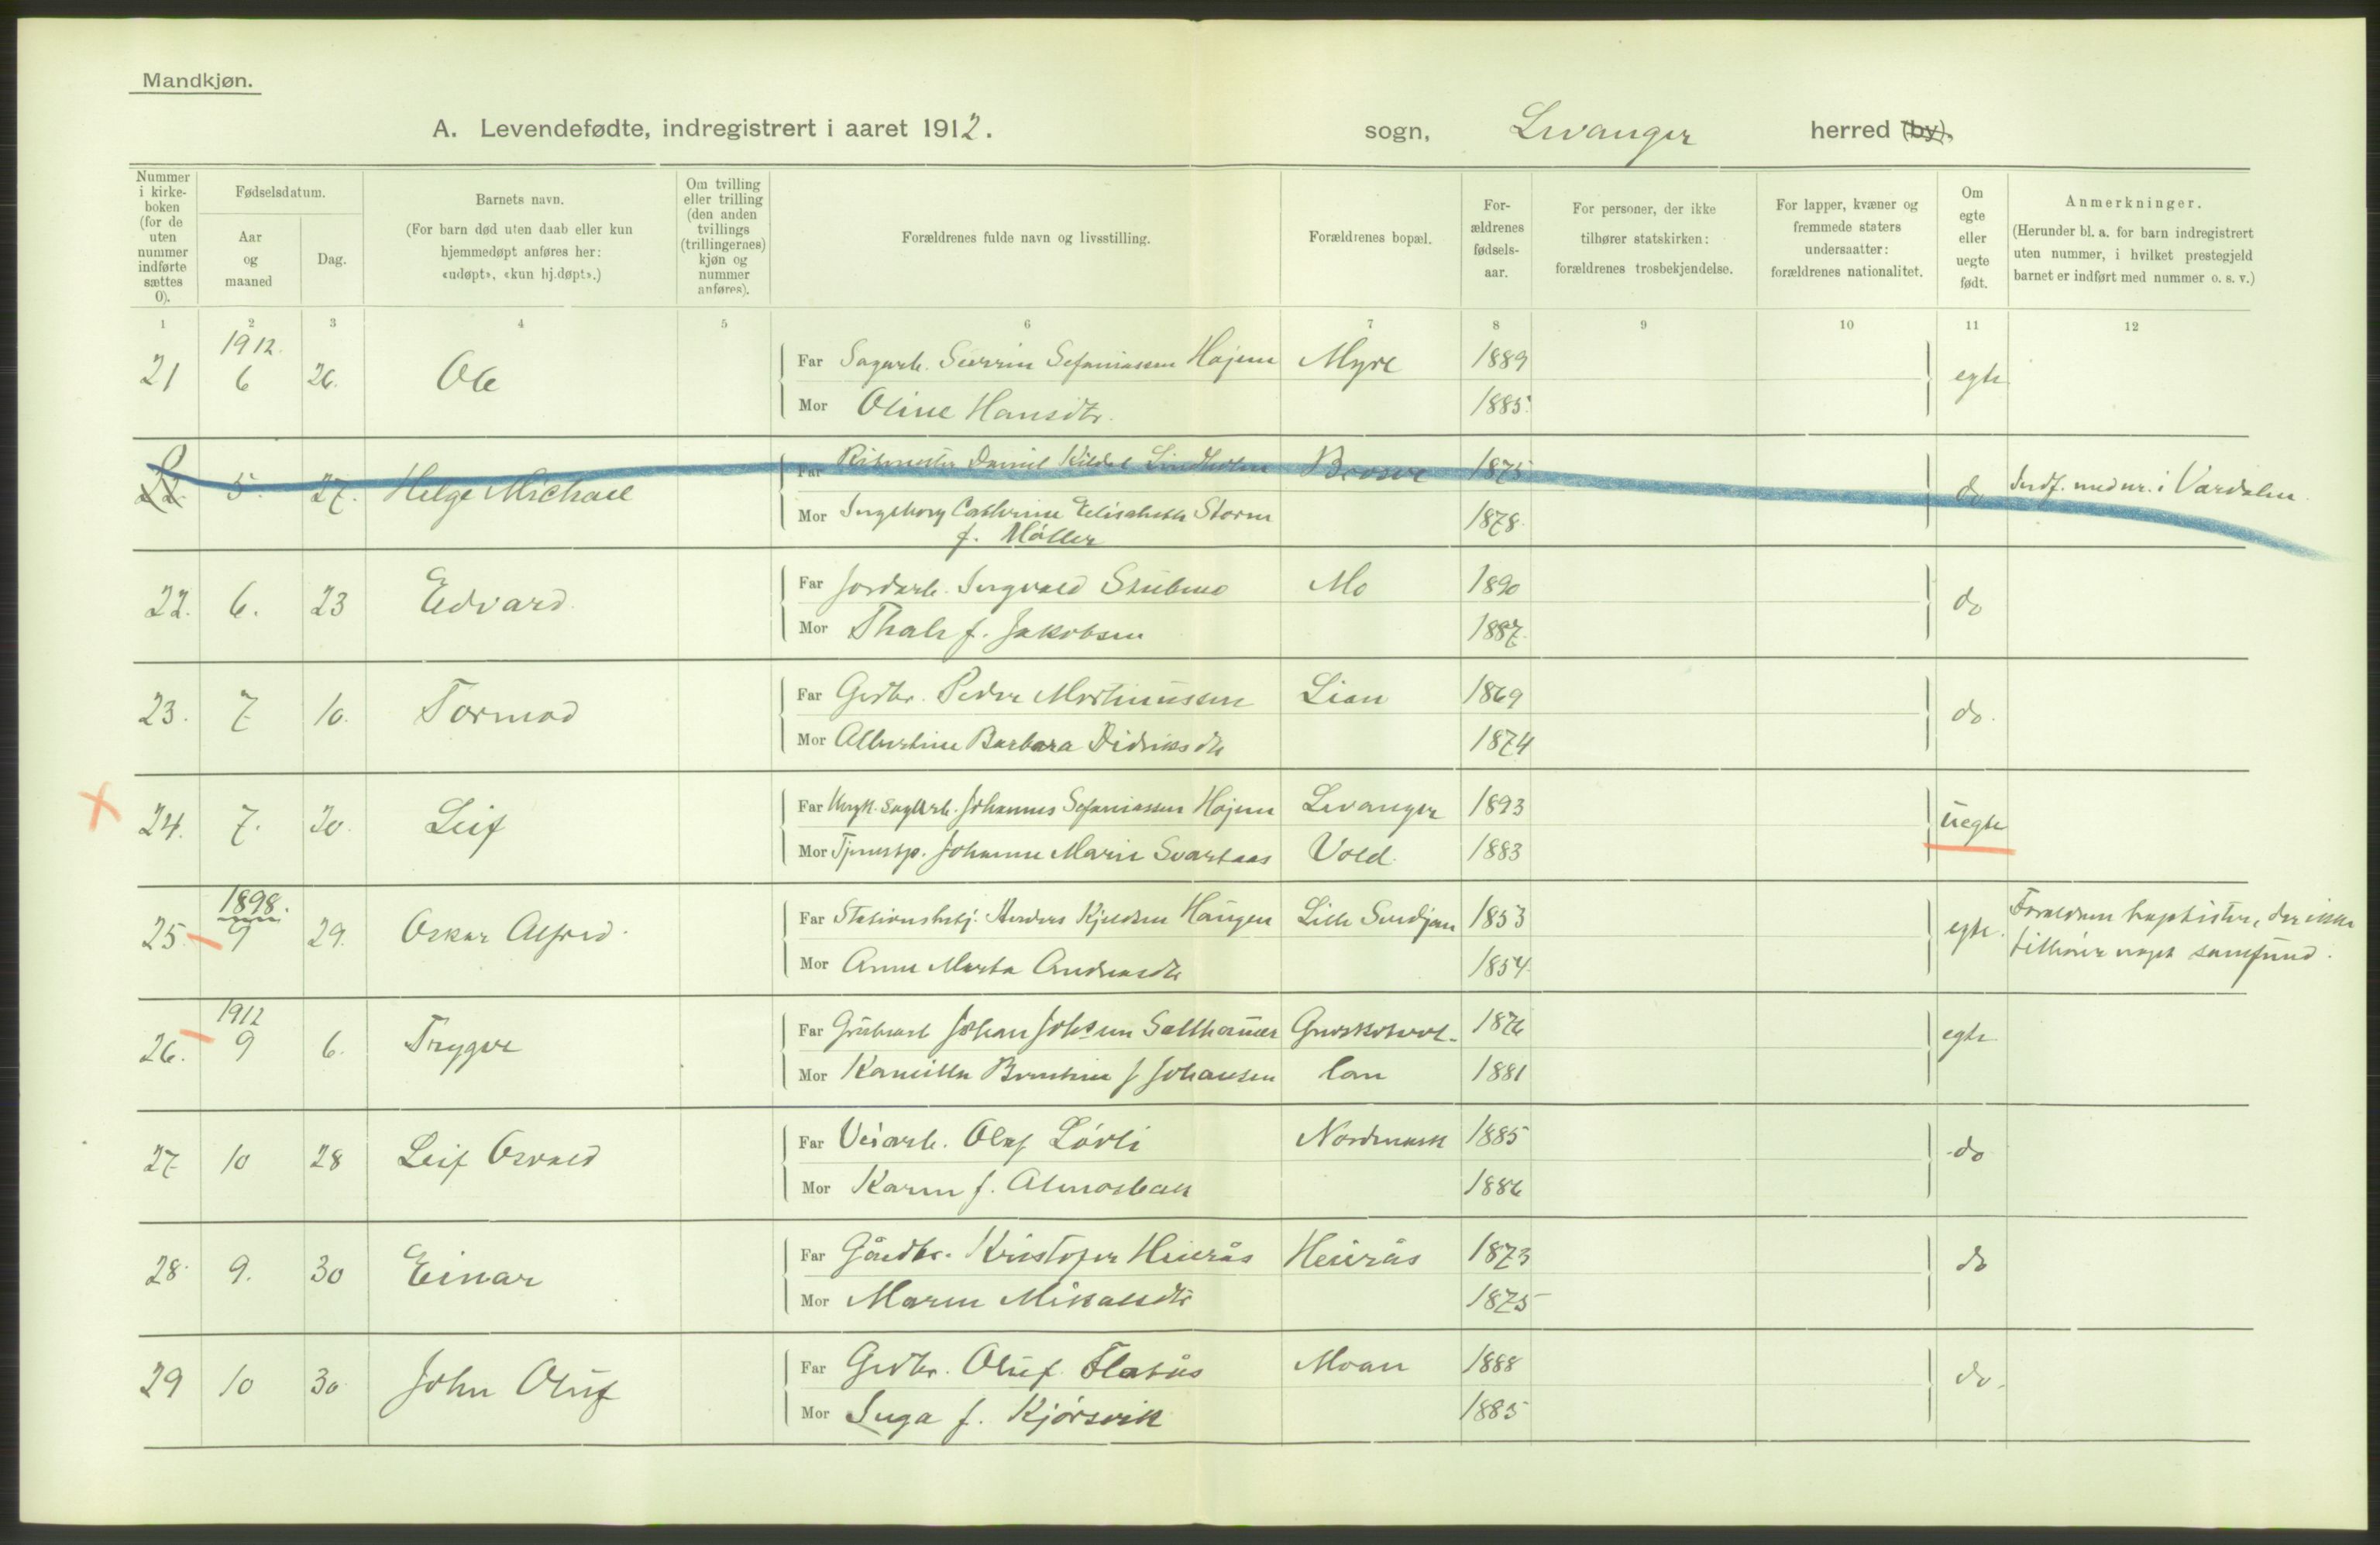 Mandkjøn.
A. Levendefødte, indregistrert i aaret 1912. sogn, Levanger herred (by).
Nummer i kirkeboken (for de uten nummer indførte sættes 0).
Fødselsdatum.
Aar og maaned
Dag.
Barnets navn.
(For barn død uten daab eller kun hjemmedøpt anføres her: «udøpt», «kun hj.døpt».)
Om tvilling eller trilling (den anden tvillings (trillingernes) kjøn og nummer anføres).
Forældrenes fulde navn og livsstilling.
Forældrenes bopæl.
Forældrenes fødselsaar.
For personer, der ikke tilhører statskirken: forældrenes trosbekjendelse.
For lapper, kvæner og fremmede staters undersaatter: forældrenes nationalitet.
Om egte eller uegte født.
Anmerkninger.
(Herunder bl. a. for barn indregistrert uten nummer, i hvilket prestegjeld barnet er indført med nummer o. s. v.)
1 2 3 4 5 6 7 8 9 10 11 12
1912.
21 6 26. Ole Far Sagarb. Sefaniassen Højem Myre 1889 egte
Mor Oline Hansdtr. 1885.
5. 27. Helge Michael Far Ritmester Daniel Kildal Lindholm 1875 do Indf. med nr. i Værdalen
Mor Ingeborg Cathrine Elisabeth Storm 1878.
f. Møller
22. 6. 23 Edvard. Far Jordarb. Ingvald Stubmo Mo 1890 do
Mor Thale f. Jakobsen 1887.
23. 7 10. Tormod Far Grdbr. Peder Martinussen Lian 1869 do.
Mor Albertine Barbara Didriksdtr 1874
24. 7. 20. Leif Far Ungk. Sagarb. Johannes Sefaniassen Højem Levanger 1893 uegte
Mor Tjenestp. Johanne Marie Svartaas Vold. 1883
1898.
25. 9 29. Oskar Alfred. Far Stationsbetj. Anders Kjeldsen Haugen Lille 1853 egte. Forældrene baptister, der ikke
Mor Anne Marta Andreasdtr 1854. tilhører noget samfund.
1912
26. 9 6. Trygve Far Grubearb Johan Johsen Salthammer 1876 egte.
Mor Kamilla Berntine f Johansen 1881
27 10 28 Leif Osvald Far Veiarb. Olaf Lövli Nordmark 1885 do
Mor Karen f. Almosbak 1886
28. 9. 30 Einar Far Gårdbr. Kristofer Heirås Heirås 1873 do
Mor Maren Mikalsdtr 1875
29 10 30. John Oluf Far Grdbr. Oluf Flatås Moan 1888 do.
Mor Inga f. Kjörsvik 1885